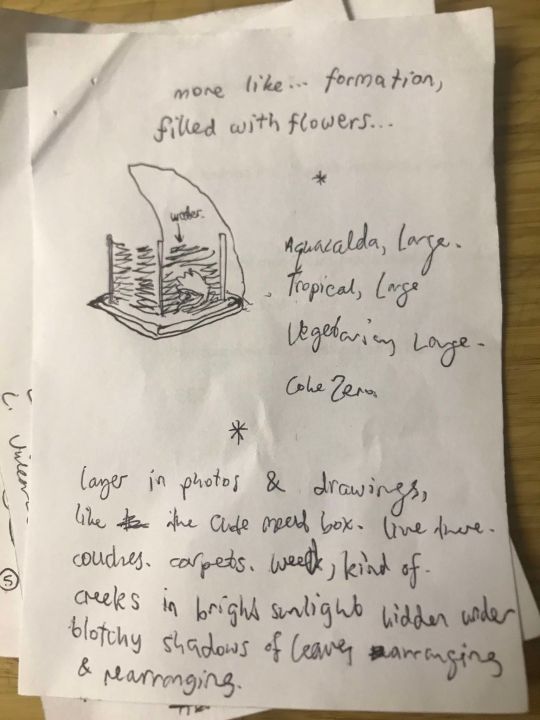 more like... formation,
filled with flowers...
*
water
Aquacalda, Large.
Tropical, Large
Vegetarian, Large.
Coke Zero.
*
layer in photos & drawings,
like the Cute box. live there.
couches. carpets. kind of.
creeks in bright sunlight hidden under
blotchy shadows of leaves arranging
& rearranging.
5